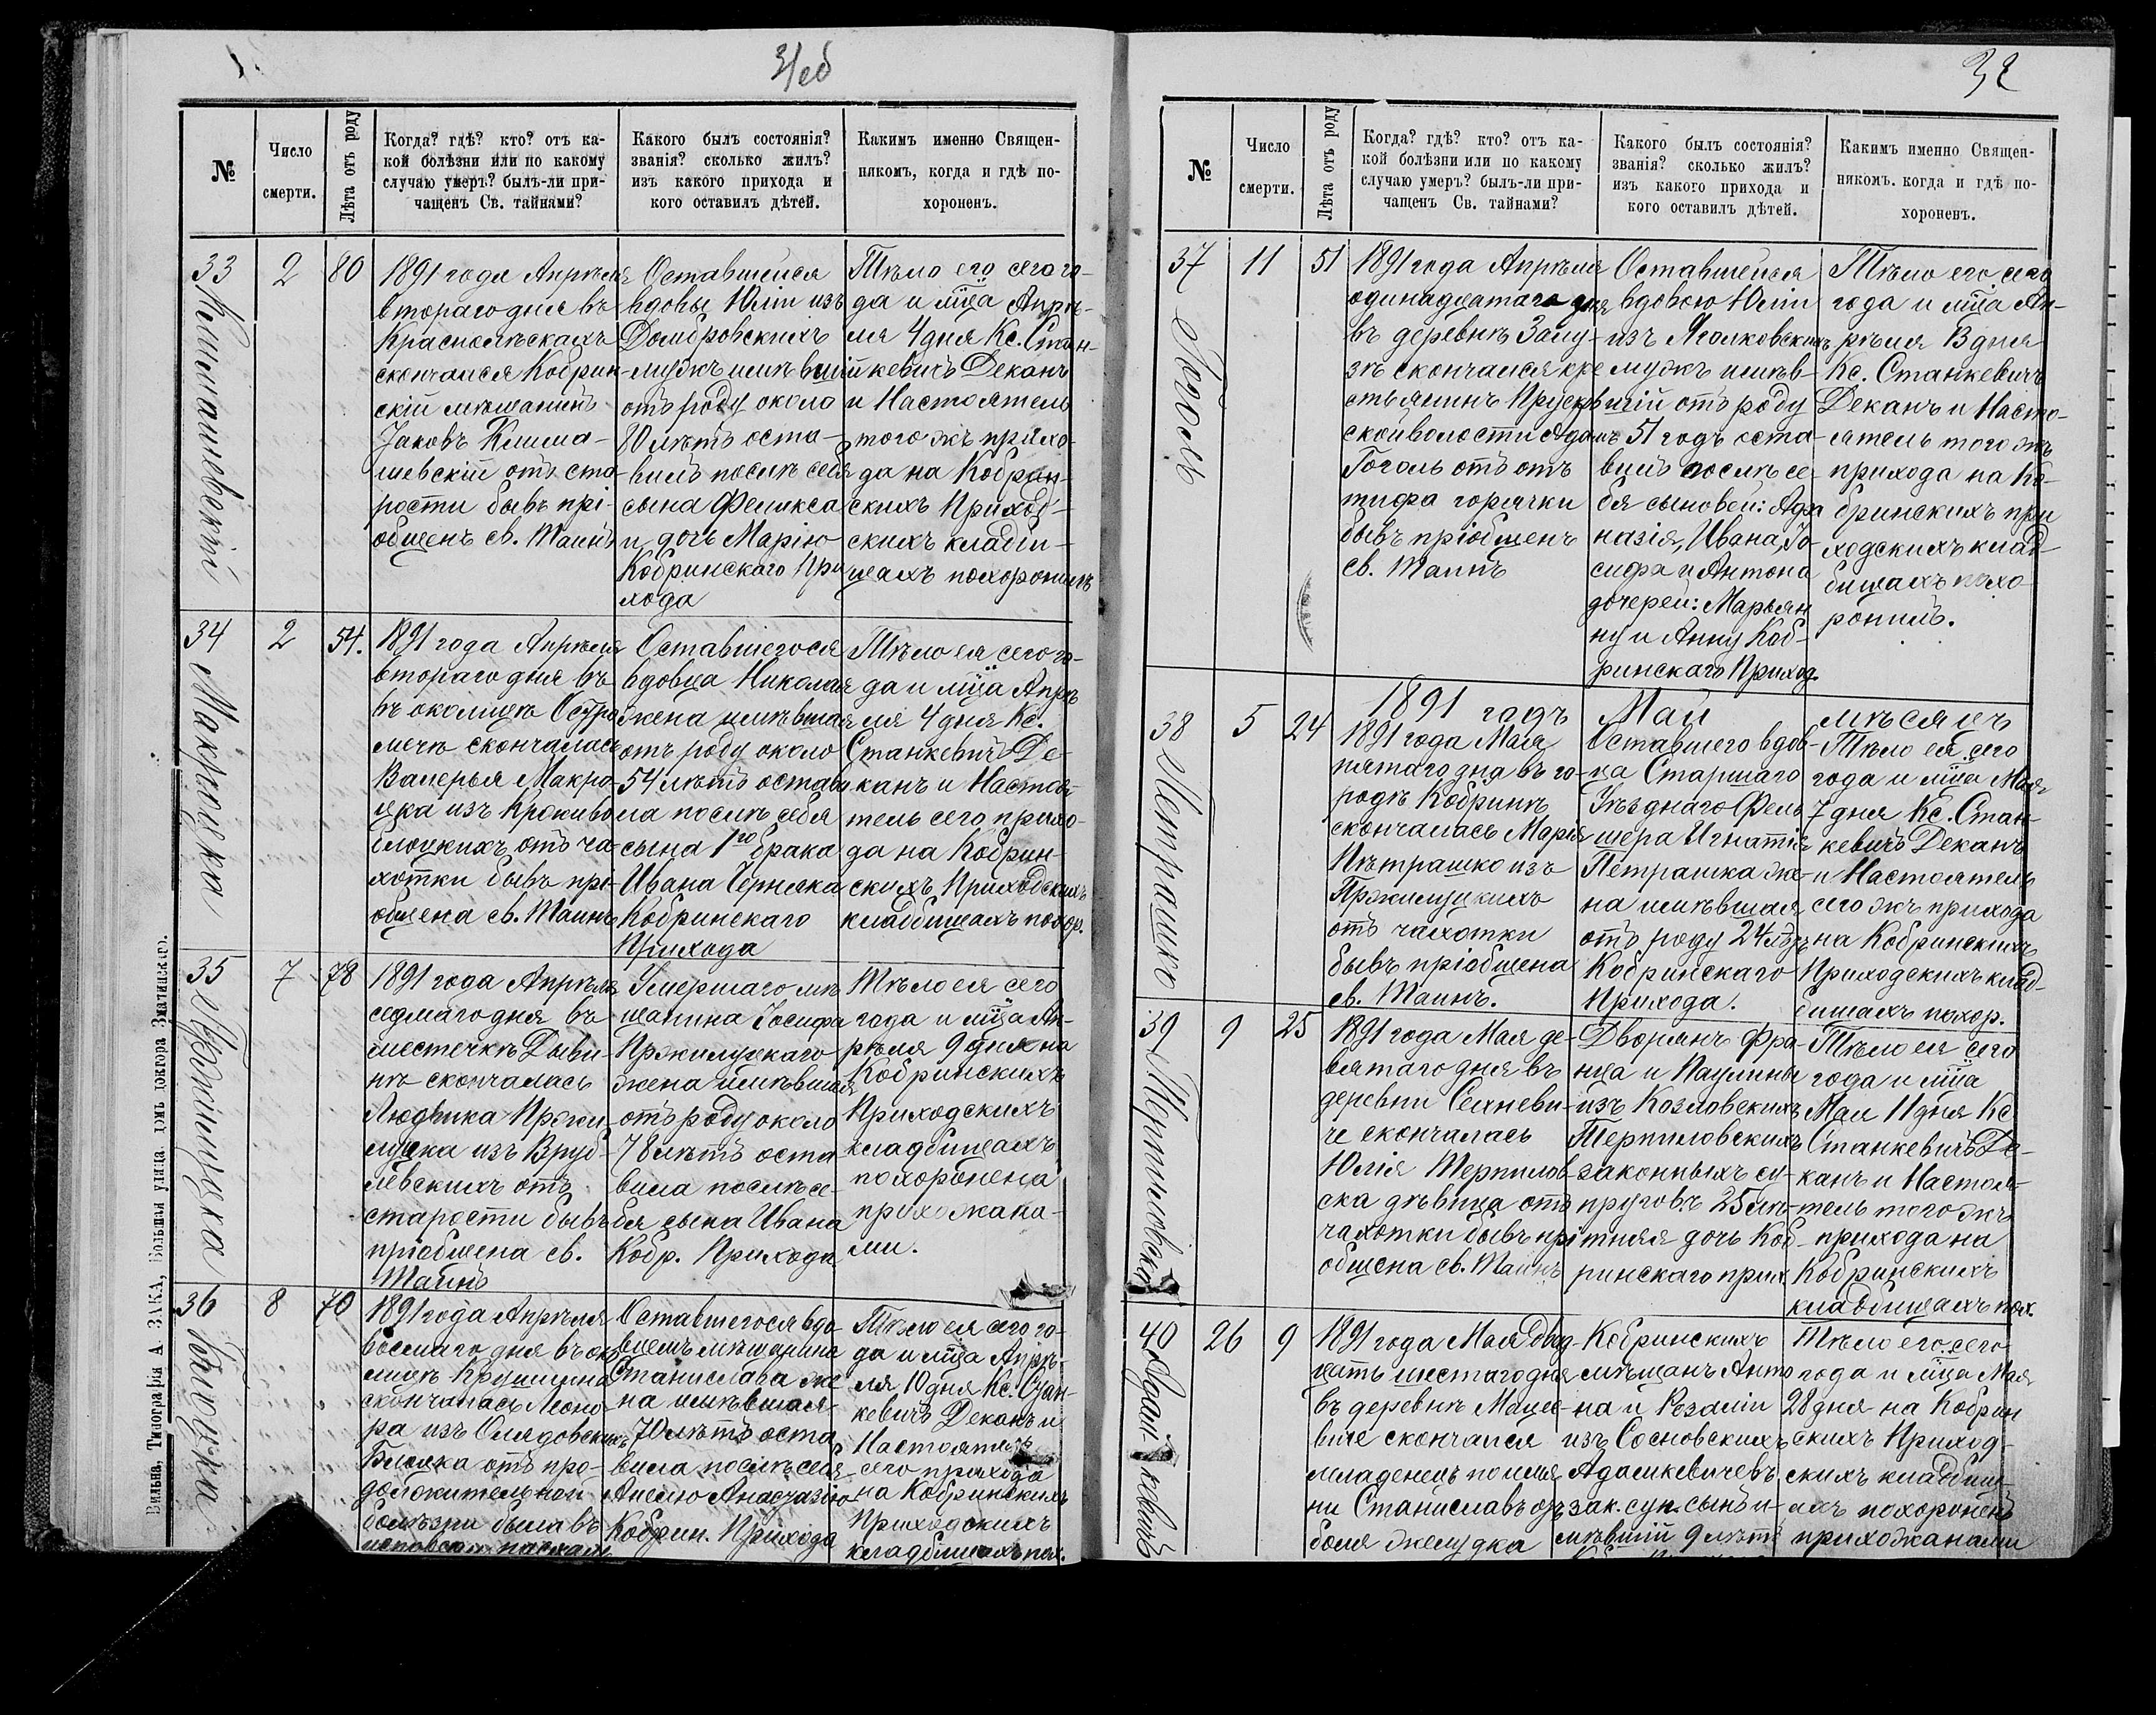 31об
№
Число
смерти.
Лѣта отъ роду
Когда? гдѣ? кто? отъ ка-
кой болѣзни или по какому
случаю умеръ? былъ-ли при-
чащенъ Св. тайнами?
Какого былъ состоянія?
званія? сколько жилъ?
изъ какого прихода и
кого оставилъ дѣтей.
Каким именно Священ-
никомъ, когда и гдѣ по-
хороненъ.
33
Климашевскій
2
80
1891 года Апрѣля
втораго дня въ
Краснолѣскахъ
скончался Кобрин-
скій мѣщанинъ
Іаковъ Клима-
шевскій отъ ста-
рости бывъ прі-
общенъ св. Таинъ
Оставшейся
вдовы Юліи изъ
Домбровскихъ
мужъ имѣвшій
отъ роду около
80 лѣтъ оста-
вилъ послѣ себя
сына Феликса
и дочь Марію
Кобринскаго При
хода
Тѣло его сего го-
да и мѣца Апрѣ-
ля 4 дня Кс. Стан-
кевичъ Деканъ
и Настоятель
того жъ прихо-
да на Кобрин-
скихъ Приход-
скихъ кладби-
щахъ похоронилъ
34
Макрицка
2
54.
1891 года Апрѣля
втораго дня въ
въ околицѣ Остро
мечѣ скончалась
Валерья Макри-
цка изъ Кроживо
блоцкихъ отъ ча-
хотки бывъ прі-
общена св. Таинъ
Оставшегося
вдовца Николая
жена имѣвшая
отъ роду около
54 лѣтъ остави
ла послѣ себя
сына 1го брака
Ивана Черняка
Кобринскаго
Прихода
Тѣло ея сего го-
да и мѣца Апрѣ
ля 4 дня Кс.
Станкевичъ Де-
канъ и Настоя
тель сего прихо-
да на Кобрин-
скихъ Приходскихъ
кладбищахъ похор.
35
Пржилуцка
7
78
1891 года Апрѣля
седмаго дня въ
местечкѣ Диви-
нѣ скончалась
Людвика Пржи-
луцка изъ Вруб-
левскихъ отъ
старости бывъ
пріобщена св.
Таинъ
Умершаго мѣ
щанина Іосифа
Пржилуцкаго
жена имѣвшая
отъ роду около
78 лѣтъ оста
вила послѣ се-
бя сына Ивана
Кобр. Прихода
Тѣло ея сего
года и мѣца Ап-
рѣля 9 дня на
Кобринскихъ
Приходскихъ
кладбищахъ
похоронена
прихожана-
ми.
36
8
70
1891 года Апрѣля
восьмаго дня въ око
лицѣ Крушина
скончалась Леоно-
ра изъ Олядовскихъ
отъ про-
должительной
болѣзни была въ
Оставшегося вдо
вцемъ мѣщанина
Станислава же
на имѣвшая
70 лѣтъ оста
вила послѣ себя
Анелю Анастазію
Кобрин. Прихода
Тѣло ея сего го-
да и мѣца Апрѣ-
ля 10 дня Кс. Стан-
кевичъ Деканъ и
Настоятель
сего прихода
на Кобринскихъ
Приходскихъ
кладбищахъ пох.
Вильна, Типографія А. ЗАКА, Большая улица домъ доктора Змачинскаго.
32
№
Число
смерти.
Лѣта отъ роду
Когда? гдѣ? кто? отъ ка-
кой болѣзни или по какому
случаю умеръ? былъ-ли при-
чащенъ Св. тайнами?
Какого былъ состоянія?
званія? сколько жилъ?
изъ какого прихода и
кого оставилъ дѣтей.
Каким именно Священ-
никомъ. когда и гдѣ по-
хороненъ.
37
Гоголь
11
51
1891 года Апрѣля
одинадцатаго дня
въ деревнѣ Залу-
зѣ скончался кре
стьянинъ Прусков
ской волости Адамъ
Гоголь отъ
тифа горячки
бывъ пріобщенъ
св. Таинъ
Оставшейся
вдовою Юліи
изъ Яголковскихъ
мужъ имѣв-
шій отъ роду
51 годъ оста-
вилъ послѣ се-
бя сыновей: Афа
назія, Ивана, Іо-
сифа и Антона
дочерей: Марьян
ну и Анну Коб-
ринскаго Приход.
Тѣло его сего
года и мѣца Ап-
рѣля 13 дня
Кс. Станкевичъ
Деканъ и Насто-
ятель того жъ
прихода на Ко-
бринскихъ при
ходскихъ клад-
бищахъ похо
ронилъ.
1891 годъ Май мѣсяцъ
38
Петрашко
5
24
1891 года Мая
пятаго дня въ го-
родѣ Кобринѣ
скончалась Марія
Пѣтрашко изъ
Пржилуцкихъ
отъ чахотки
бывъ пріобщена
св. Таинъ.
Оставшего вдов-
ца Старшаго
Уѣзднаго Фель
шера Игнатія
Петрашка же-
на имѣвшая
отъ роду 24 лѣтъ
Кобринскаго
Прихода.
Тѣло ея сего
года и мѣца Мая
7 дня Кс. Стан-
кевичъ Деканъ
и Настоятель
сего жъ прихода
на Кобринскихъ
Приходскихъ клад-
бищахъ похор.
39
Терпиловска
9
25
1891 года Мая де-
вятаго дня въ
деревни Сехневи-
че скончалась
Юлія Терпилов-
ска дѣвица отъ
чахотки бывъ прі
общена св. Таинъ
Дворянъ Фра-
нца и Паулины
изъ Козловскихъ
Терпиловскихъ
законныхъ су-
пруговъ 25 лѣ-
тняя дочь Коб-
ринскаго прих.
Тѣло ея сего
года и мѣца
Мая 11 дня Кс
Станкевичъ Де-
канъ и Настоя-
тель того жъ
прихода на
Кобринскихъ
кладбищахъ пох.
40
Адамкевичъ
26
9
1891 года Мая Двад-
цать шестаго дня
въ деревнѣ Маце-
виче скончался
младенецъ по име
ни Станиславъ отъ
боля желудка
Кобринскихъ
мѣщанъ Анто
на и Розаліи
изъ Сосновскихъ
Адамкевичевъ
зак. суп. сынъ и-
мѣвшій 9 лѣтъ
Тѣло его сего
года и мѣца Мая
28 дня на Кобрин
скихъ Приход-
скихъ кладбищ-
ахъ похороненъ
прихожанами